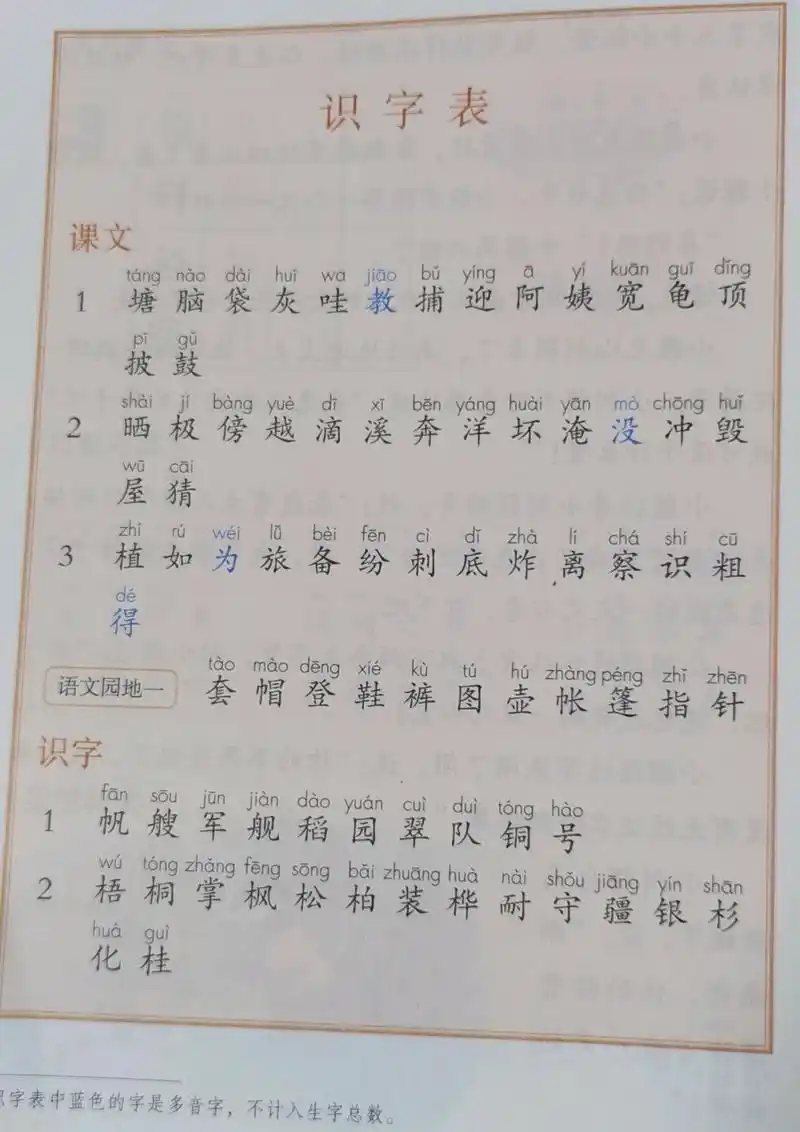 识字表
课文
táng nǎo dài huī wa jiāo bǔ yíng ā yí kuān guī dǐng
1 塘 脑 袋 灰 哇 教 捕 迎 阿 姨 宽 龟 顶
pī gǔ
披 鼓
shài jí bàng yuè dī xī bēn yáng huài yān mò chōng huǐ
2 晒 极 傍 越 滴 溪 奔 洋 坏 淹 没 冲 毁
wū cāi
屋 猜
zhí rú wéi lǚ bèi fēn cì dǐ zhà lí chá shi cū
3 植 如 为 旅 备 纷 刺 底 炸 离 察 识 粗
dé
得
tào mào dēng xié kù tú hú zhàng péng zhǐ zhēn
语文园地一 套 帽 登 鞋 裤 图 壶 帐 篷 指 针
识字
fān sōu jūn jiàn dào yuán cuì duì tóng hào
1 帆 艘 军 舰 稻 园 翠 队 铜 号
wú tóng zhǎng fēng sōng bǎi zhuāng huà nài shǒu jiāng yín shān
2 梧 桐 掌 枫 松 柏 装 桦 耐 守 疆 银 杉
huà guì
化 桂
识字表中蓝色的字是多音字，不计入生字总数。